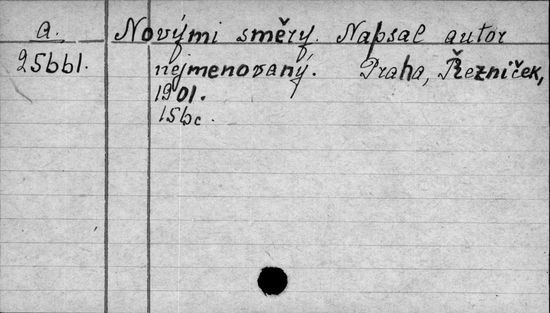 a. Novými směry. Napsal autor
25bb1. nejmenovaný. Praha, Řezníček,
1901.
15bc.